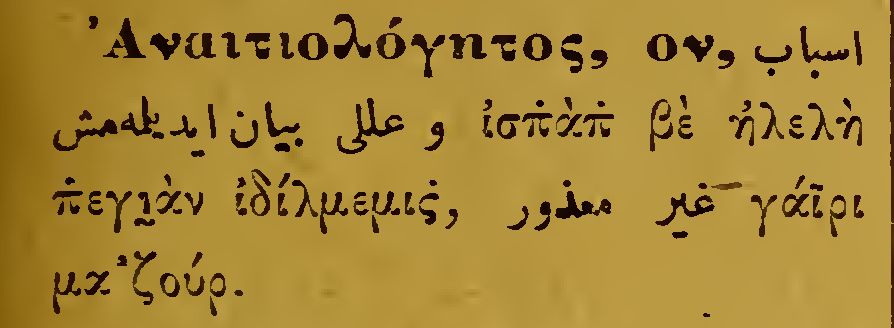 Ἀναιτιολόγητος, ον, اسباب
و عللی بیان ایدیلمهمش ἰσπ̇ὰπ̇ βὲ ἠλελὴ
π̇εγιὰν ἰδίλμεμις̇, غیر معذور γάϊρι
μα’ζούρ.